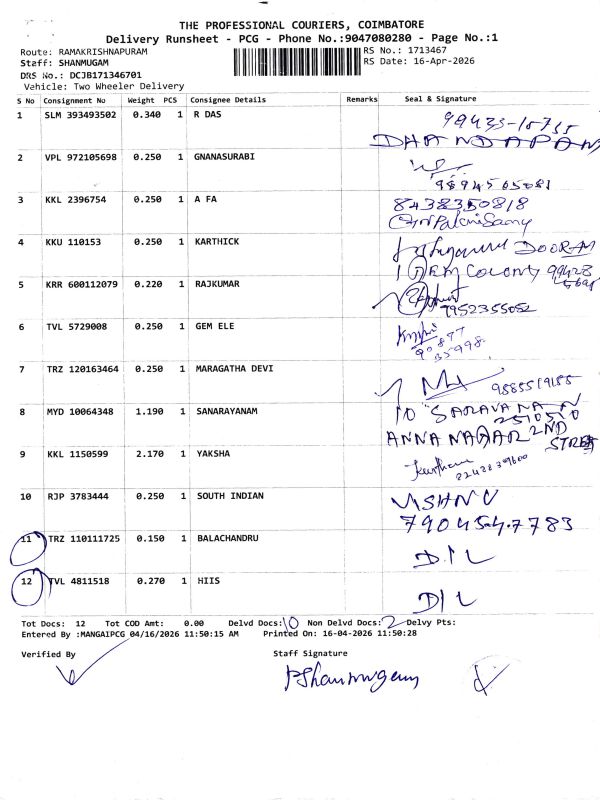 THE PROFESSIONAL COURIERS, COIMBATORE
Delivery Runsheet - PCG - Phone No.:9047080280 - Page No.:1
Route: RAMAKRISHNAPURAM RS No.: 1713467
Staff: SHANMUGAM RS Date: 16-Apr-2026
DRS No.: DCJB171346701
Vehicle: Two Wheeler Delivery
S No Consignment No Weight PCS Consignee Details Remarks Seal & Signature
1 SLM 393493502 0.340 1 R DAS
DHANDAPANI
2 VPL 972105698 0.250 1 GNANASURABI
9894565081
3 KKL 2396754 0.250 1 A FA 8438350818
4 KKU 110153 0.250 1 KARTHICK DOORAM
Colony 99428
5 KRR 600112079 0.220 1 RAJKUMAR
7952355052
6 TVL 5729008 0.250 1 GEM ELE
90897
35998
7 TRZ 120163464 0.250 1 MARAGATHA DEVI
9885519185
8 MYD 10064348 1.190 1 SANARAYANAM 10 SARAVANAN
251050
ANNA NAGAR 2ND STREET
9 KKL 1150599 2.170 1 YAKSHA
10 RJP 3783444 0.250 1 SOUTH INDIAN VISHNU
7904547783
11 TRZ 110111725 0.150 1 BALACHANDRU D/L
12 TVL 4811518 0.270 1 HIIS D/L
Tot Docs: 12 Tot COD Amt: 0.00 Delvd Docs: 10 Non Delvd Docs: 2 Delvy Pts:
Entered By :MANGAIPCG 04/16/2026 11:50:15 AM Printed On: 16-04-2026 11:50:28
Verified By Staff Signature
PShanmugam